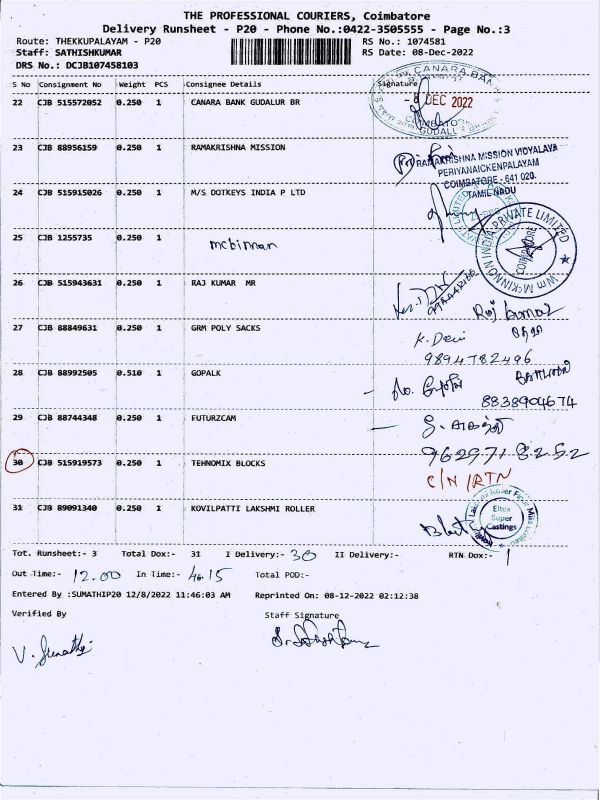 THE PROFESSIONAL COURIERS, Coimbatore
Delivery Runsheet - P20 - Phone No.:0422-3505555 - Page No.:3
Route: THEKKUPALAYAM - P20 RS No.: 1074581
Staff: SATHISHKUMAR RS Date: 08-Dec-2022
DRS No.: DCJB107458103
S No Consignment No Weight PCS Consignee Details Signature
22 CJB 515572052 0.250 1 CANARA BANK GUDALUR BR
CANARA BANK
- 8 DEC 2022
23 CJB 88956159 0.250 1 RAMAKRISHNA MISSION
RAMAKRISHNA MISSION VIDYALAYA
PERIYANAICKENPALAYAM
COIMBATORE - 641 020.
TAMIL NADU
24 CJB 515915026 0.250 1 M/S DOTKEYS INDIA P LTD
25 CJB 1255735 0.250 1 mckinnon
Wm McKINNON INDIA PRIVATE LIMITED
COIMBATORE
26 CJB 515943631 0.250 1 RAJ KUMAR MR
Raj kumar
27 CJB 88849631 0.250 1 GRM POLY SACKS
K. Devi
9894782496
28 CJB 88992505 0.510 1 GOPALK
8838904674
29 CJB 88744348 0.250 1 FUTURZCAM
9629718252
30 CJB 515919573 0.250 1 TEHNOMIX BLOCKS
C/N /RTN
31 CJB 89091340 0.250 1 KOVILPATTI LAKSHMI ROLLER
Eltex
Super
Castings
Tot. Runsheet:- 3 Total Dox:- 31 I Delivery:- 30 II Delivery:- RTN Dox:- 1
Out Time:- 12.00 In Time:- 4.15 Total POD:-
Entered By :SUMATHIP20 12/8/2022 11:46:03 AM Reprinted On: 08-12-2022 02:12:38
Verified By Staff Signature
V. Sumathi